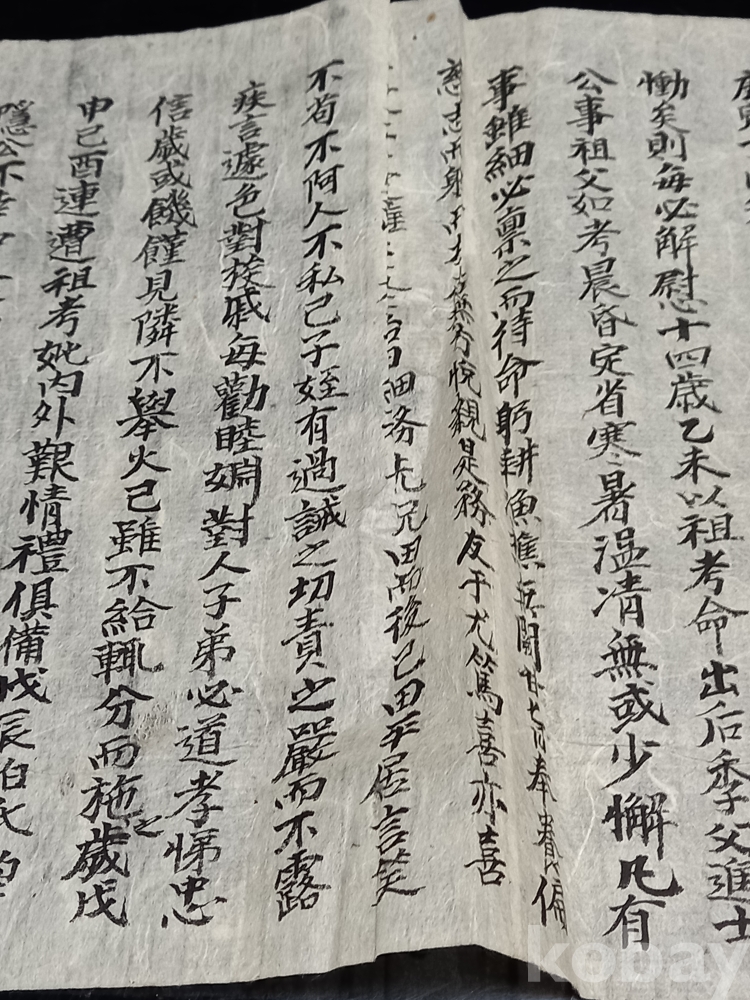 慟矣則每必解慰十四歲乙未以祖考命出后季父進士
公事祖父如考晨昏定省寒暑溫凊無或少懈凡有
事雖細必稟之而待命躬耕漁樵無闕甘旨奉養備
悅親是務友于尤篤喜亦喜
細務先兄田而後己田平居言笑
不苟不阿人不私己子姪有過誡之切責之嚴而不露
疾言遽色對族戚每勸睦婣對人子弟必道孝悌忠
信歲或饑饉見隣不擧火己雖不給輒分而施之歲戊
申己酉連遭祖考妣內外艱情禮俱備戊辰伯氏
隱公不幸
kobay